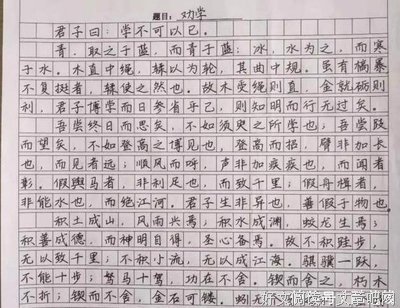 题目: 劝学
君子曰:学不可以已。
青,取之于蓝,而青于蓝;冰,水为之,而寒
于水。木直中绳,輮以为轮,其曲中规。虽有槁暴
不复挺者,輮使之然也。故木受绳则直,金就砺则
利,君子博学而日参省乎己,则知明而行无过矣。
吾尝终日而思矣,不如须臾之所学也;吾尝跂
而望矣,不如登高之博见也。登高而招,臂非加长
也,而见者远;顺风而呼,声非加疾也,而闻者
彰。假舆马者,非利足也,而致千里;假舟楫者,
非能水也,而绝江河。君子生非异也,善假于物也。
积土成山,风雨兴焉;积水成渊,蛟龙生焉;
积善成德,而神明自得,圣心备焉。故不积跬步,
无以致千里;不积小流,无以成江海。骐骥一跃,
不能十步;驽马十驾,功在不舍。锲而舍之,朽木
不折;锲而不舍,金石可镂。蚓无